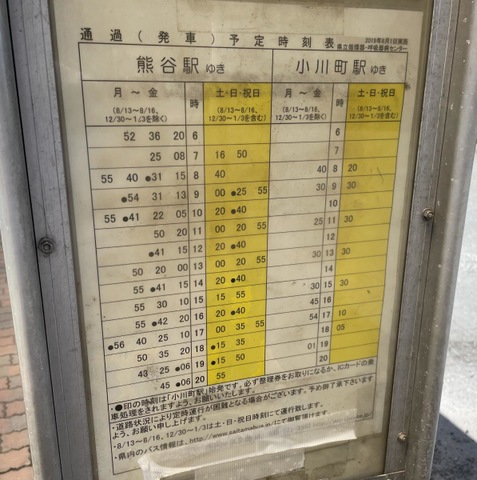 通過(発車)予定時刻表
2019年6月1日実施
県立循環器・呼吸器病センター
熊谷駅 ゆき 小川町駅 ゆき
月～金 時 土・日・祝日 月～金 時 土・日・祝日
(8/13～8/16、12/30～1/3を除く) (8/13～8/16、12/30～1/3を含む) (8/13～8/16、12/30～1/3を除く) (8/13～8/16、12/30～1/3を含む)
52 36 20 6 6
25 08 7 16 50 7
55 40 ●31 15 8 40 40 8 20
●54 31 13 9 00 ●25 55 30 9 30
55 ●41 22 05 10 20 ●40 10
50 20 11 00 20 55 25 11 30
●41 15 12 20 ●40 12
50 20 00 13 00 20 55 30 13 30
55 ●41 15 14 20 ●40 14
55 30 10 15 15 55 30 15 30
55 ●42 20 16 20 ●40 45 16
●56 40 25 10 17 00 35 55 54 17 10
50 35 20 18 ●15 35 18 05
43 25 ●06 19 ●15 50 01 19
45 ●06 20 55 20
・●印の時刻は「小川町駅」始発です。必ず整理券をお取りになるか、ICカードの乗
車処理をされますよう、お願いいたします。
・道路状況により定時運行が困難となる場合がございます。予め御了承下さいます
よう、お願い申し上げます。
・8/13～8/16、12/30～1/3は土・日・祝日時刻にて運行致します。
・県内のバス情報は、http://www.saitamabus.jp/にて御覧頂けます。